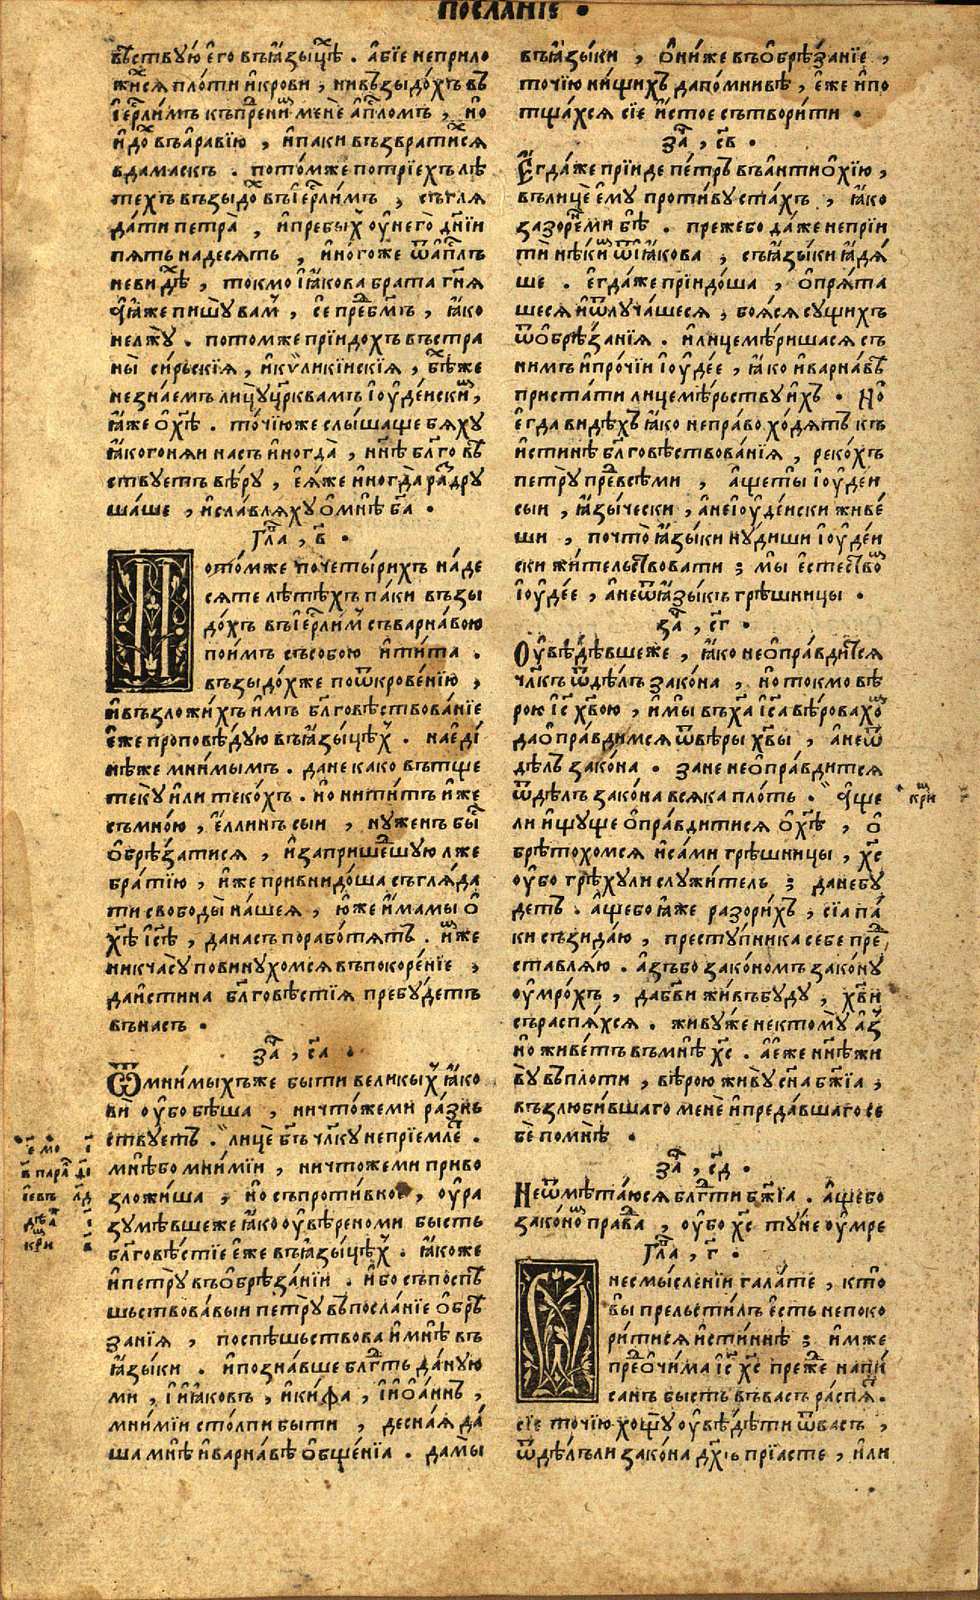 посланїе •
вѣствую̀ є҆го въꙗ҆зы́цѣⷯ . а҆бїе неприло
жиⷯся пло́ти и҆крови , нивъзыдо́хъ въ
і҆ерⷭ҇лимъ къпре́ниⷨ менѐ а҆пⷭ҇ломъ , но̀
и҆доⷯ въа҆ра́вїю , и҆паки възврати́ⷯся
вдамаскъ . пото́мже потрїехъ лѣ
техъ възыдоⷯ въі҆ерⷭ҇ли́мъ , съгля
да́ти петра̀ , и҆пребыⷯ оу҆него̀ дн҃їи
пять надесять , и҆но́гоже ѿа҆пⷭ҇лъ
невидѣⷯ , токмо і҆ꙗ҆кова брата гнⷭ҇я
ꙗ҆́же пишу̀ ваⷨ , се преⷣбг҃мъ , ꙗ҆ко
нелжу̀ . потомже прїидохъ въстра
ны̀ си́рьскїя , и҆киликі́искїя , бѣⷯже
незна́емъ лице́мъ цр҃квамъ і҆оуде́искиⷨ ,
ꙗ҆́же о҆хⷭ҇ѣ . то́чїюже слы́шаще бя́ху
ꙗ҆когоняи насъ и҆ногда̀ , нн҃ѣ блг҃о вѣ
ствуетъ вѣ́ру , є҆я́же и҆ногда̀ раⷥдру
ша́ше , и҆славля́ху о҆мнѣ̀ бг҃а •
Глⷡ҇а , в҃ •
Пото́мже почеты́рихъ на́де
сяте лѣ́тѣхъ па́ки възы
до́хъ въі҆ерⷭ҇лиⷨ съварна́вою
поимъ съсобою и҆ти́та .
възыдо́хже поѿкрове́нїю ,
и҆възложи́хъ и҆мъ блг҃овѣствова́нїе
є҆́же проповѣ́дую въꙗ҆зы́цѣⷯ . нае҆ді́
нѣже мни́мымъ . дане како вътще
теку̀ и҆ли теко́хъ . но нити́тъ и҆́же
съмно́ю , є҆́ллинъ сыи , ну́женъ бы́ⷭ
о҆брѣ́затися , и҆запри́шеⷣшую лже
бра́тїю , и҆́же привнидо́ша съгля́да
ти свободы̀ на́шея , ю҆́же и҆́мамы о҆
хⷭ҇ѣ і҆сⷭ҇ѣ , данасъ порабо́тятъ . и҆́мже
никча́су повину́хомся въпокоре́нїе ,
даи́стина блг҃овѣ́стїя пребу́детъ
въна́съ •
заⷱ҇ , са҃ •
Ѿмни́мыхъже быти великыⷯ ꙗ҆ко
ви̏ оу҆бо бѣша , ничто́жеми ра́знь
ствуетъ . лицѐ бг҃ъ члк҃у непрїемлеⷮ .
мнѣ́бо мни́мїи , ничтожеми приво
зложи́ша , но̀ съпротивно̀ , оу҆ра
зумѣ́вшеже ꙗ҆ко оу҆вѣ́реноми бысть
блг҃овѣ́стїе є҆́же въꙗ҆зы́цѣⷯ . ꙗ҆коже
и҆петру̀ въо҆брѣ́занїи . и҆́бо съпоспѣ
шьствова́выи петру̀ въпосла́нїе о҆брѣ
занїя , поспѣшьствова и҆мнѣ̀ въ
ꙗ҆зы́ки . и҆позна́вше блг҃ть да́ную
ми , і҆и҆ꙗ҆ковъ , и҆ки́фа , і҆и҆оа́ннъ ,
мни́мїи сто́лпи быти , десна́я да́
ша мнѣ̀ и҆варна́вѣ о҆бще́нїа . да́мы
въꙗ҆зы́ки , о҆ни́же въо҆брѣ́занїе ,
точїю ни́щихъ дапо́мнивѣ , є҆же и҆по
тща́хся сїѐ и҆́стое сътвори́ти •
заⷱ҇ , св҃ •
Є҆гда́же прїиде пе́тръ въа҆нтио҆хі́ю ,
въли́це є҆му̀ противу́ стахъ , ꙗ҆ко
зазо́реⷩми бѣ̀ . прежебо да́же неприи
ти нѣ́киⷨ ѿі҆ꙗ҆кова , съꙗ҆зы́ки ꙗ҆дя́
ше . є҆гда́же прїидо́ша , о҆пря́та
шеся и҆ѿлуча́шеся , боя́ся су́щихъ
ѿо҆брѣ́занїя . и҆лицемѣ́ришася съ
нимъ и҆про́чїи і҆оуде́е , ꙗ҆ко и҆варна́вѣ
приста́ти лицемѣ́рьству и҆́хъ • Но̀
є҆гда ви́дѣхъ ꙗ҆ко непра́во хо́дятъ къ
и҆́стинѣ блг҃овѣствова́нїя , реко́хъ
петру̀ преⷣвсѣ́ми , а҆ще́ты і҆оуде́и
сыи , ꙗ҆зы́чески , а҆неі҆оуде́иски живе́
ши , почто̀ ꙗ҆зы́ки ну́диши і҆оуде́и
ски жи́тельствовати ; мы̀ є҆стество́ⷨ
і҆оуде́е , а҆неѿꙗ҆зы́къ грѣ́шницы •
заⷱ҇ , сг҃ •
Оу҆вѣ́дѣвшеже , ꙗ҆ко нео҆пра́вдитⷭ҇ся
чл҃къ ѿдѣ́лъ зако́на , но токмо вѣ́
рою іс҃ хв҃ою , и҆мы̀ въха҃ іс҃а вѣ́ровахоⷨ
дао҆пра́вдимся ѿвѣ́ры хв҃ы , а҆неѿ
дѣ́лъ зако́на • зане нео҆пра́вдится
ѿдѣ́лъ зако́на вся́ка пло́ть . а҆ще
ли и҆́щуще о҆правди́тися о҆хⷭ҇ѣ , о҆
брѣто́хомся и҆са́ми грѣ́шницы , хс҃
оу҆бо грѣху́ли служи́тель ; данебу́
детъ . а҆щебо ꙗ҆́же разори́хъ , сїа па́
ки съзида́ю , престу́пника себе преⷣ
ставля́ю . а҆зъбо зако́номъ зако́ну
оу҆мро́хъ , дабг҃ви жи́въбуду , хв҃и
съраспя́хся . живу́же нектому̀ а҆́зъ
но живе́тъ въмнѣ̀ хс҃ . а҆е́же нн҃ѣжи
ву̀ въпло́ти , вѣ́рою живу̀ сн҃а бж҃їа ,
възлюби́вшаго менѐ и҆преда́вшаго се
бѐ помнѣ̀ •
заⷱ҇ , сд҃ •
Неѿмѣта́юся блгⷣ҇ти бж҃їа . а҆щебо
зако́ноⷨ праⷡ҇да , оу҆бо хс҃ ту́не оу҆мре
Глⷡ҇а , г҃ •
Ѽ несмы́сленїи гала́те , кто̀
вы̀ прельсти́лъ є҆сть непоко
ри́тися и҆́стиннѣ ; и҆́мже
преⷣо҆чи́ма іс҃ хс҃ преⷤ́е напи́
санъ бысть въва́съ распяⷮ .
сїѐ то́чїю хощу̀ оу҆вѣ́дѣти ѿва́съ ,
ѿдѣ́лъли зако́на дх҃ъ прїа́сте , и҆ли
кри
є҃ мо і҃
в҃ пара аі҃
і҆евъ лд
дѣа і҃
кри в҃